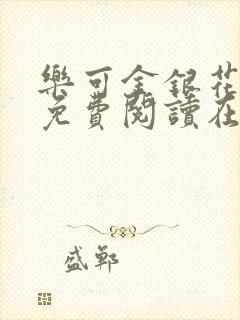 樂可金銀花
免費閱讀在
盛鄴